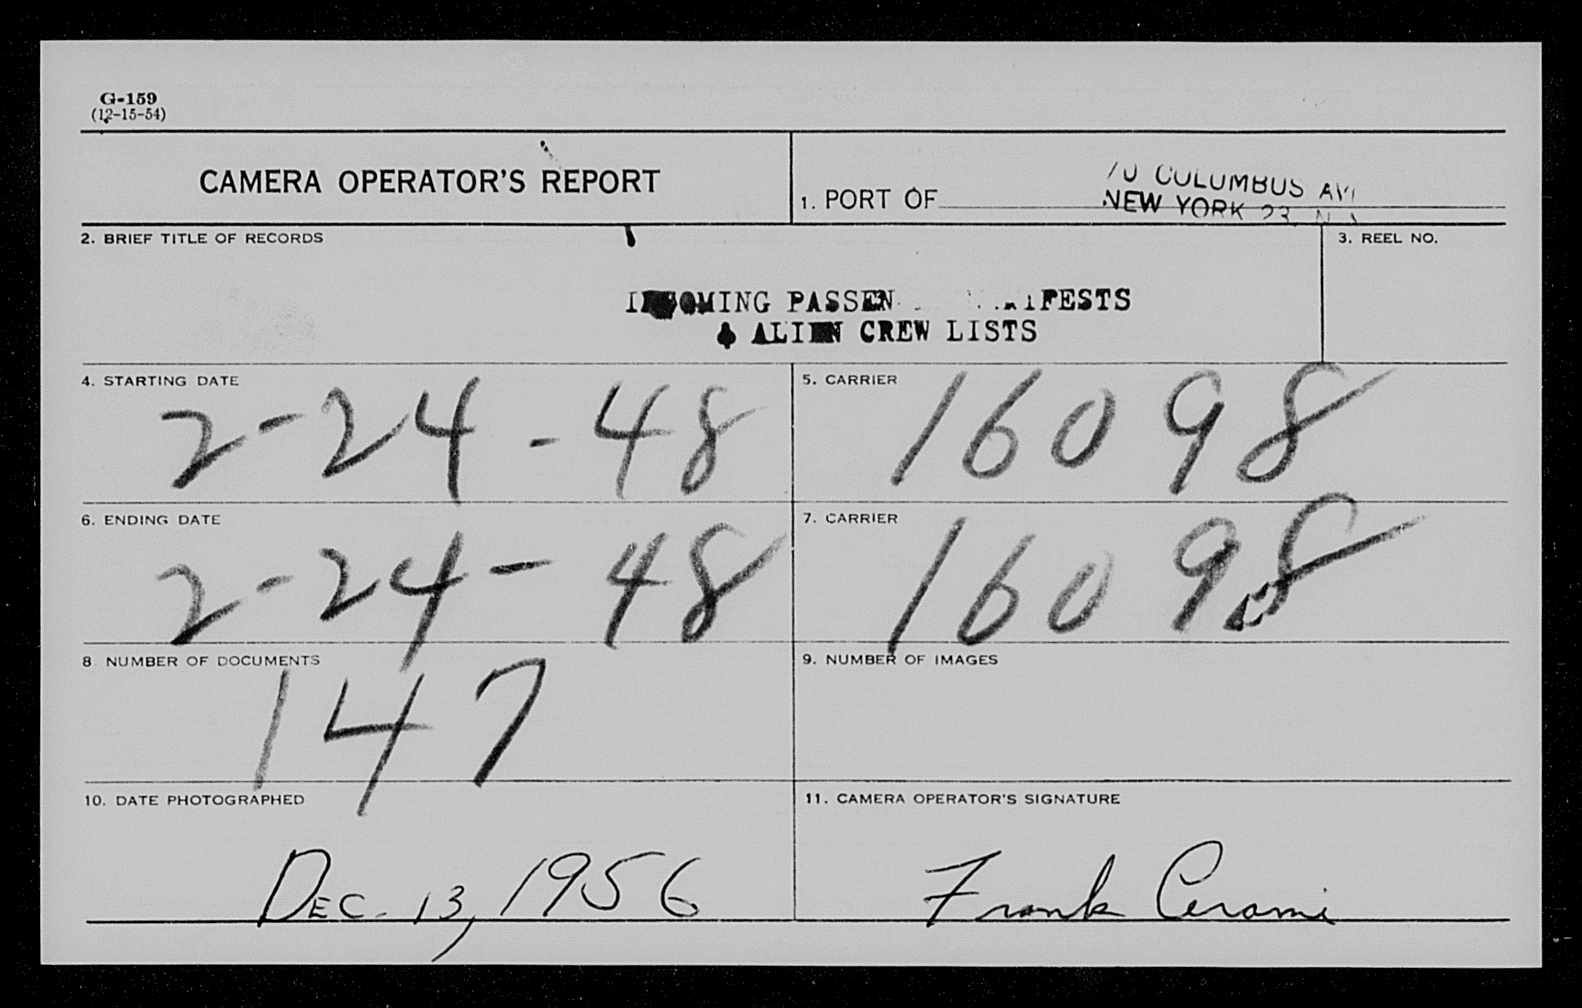 G-159
(12-15-54)
CAMERA OPERATOR'S REPORT
1. PORT OF
70 COLUMBUS AV
NEW YORK 23, N.Y.
2. BRIEF TITLE OF RECORDS
3. REEL NO.
INCOMING PASSEN IFESTS
& ALIEN CREW LISTS
4. STARTING DATE
2-24-48
5. CARRIER
16098
6. ENDING DATE
2-24-48
7. CARRIER
16098
8 NUMBER OF DOCUMENTS
147
9. NUMBER OF IMAGES
10. DATE PHOTOGRAPHED
DEC. 13, 1956
11. CAMERA OPERATOR'S SIGNATURE
Frank Cerami